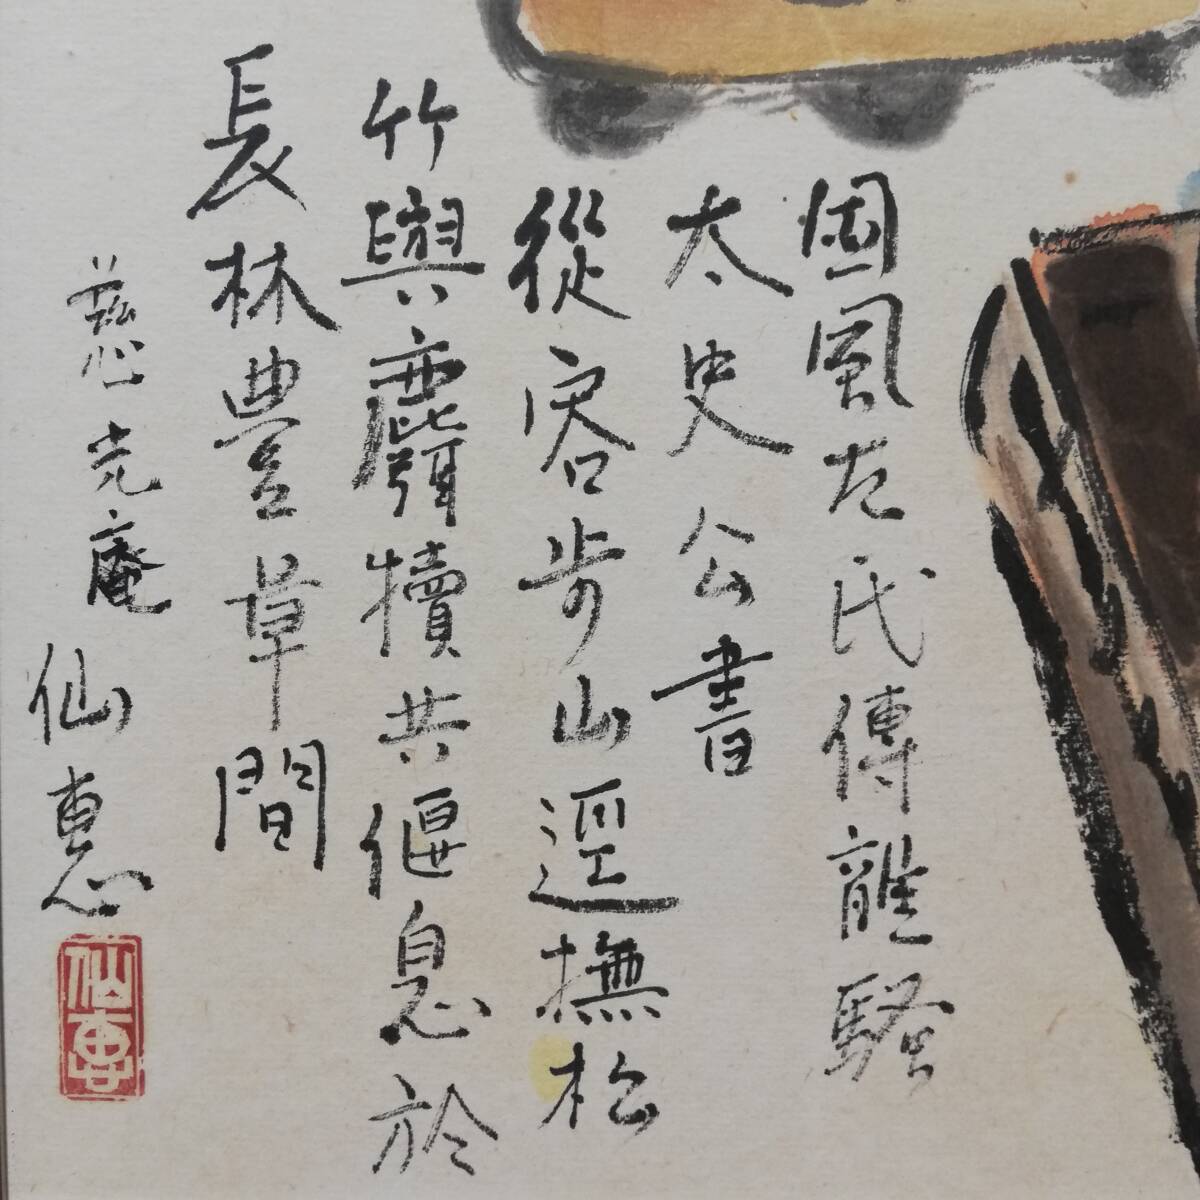 國風左氏傳離騷
太史公書
從容步山逕撫松
竹與麛犢共偃息於
長林豊草間
慈光庵
仙惠
仙惠